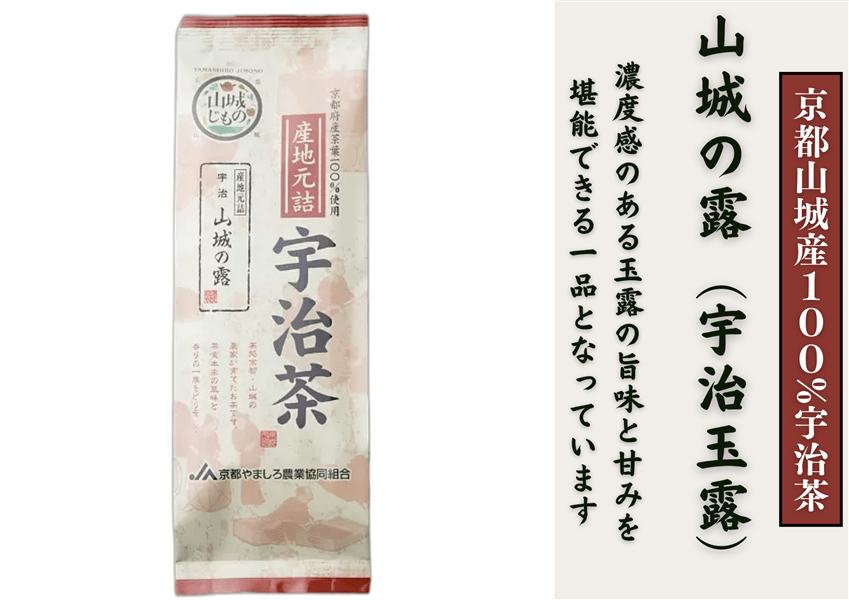 YAMASHIRO JIMONO
山城
じもの
京都府産茶葉100%使用
産地元詰
宇治茶
産地元詰
宇治
山城の露
茶処京都・山城の
農家が育てたお茶です。
茶葉本来の風味と
香りの一服をどうぞ
JA京都やましろ農業協同組合
京都山城産100%宇治茶
山城の露（宇治玉露）
濃度感のある玉露の旨味と甘みを
堪能できる一品となっています